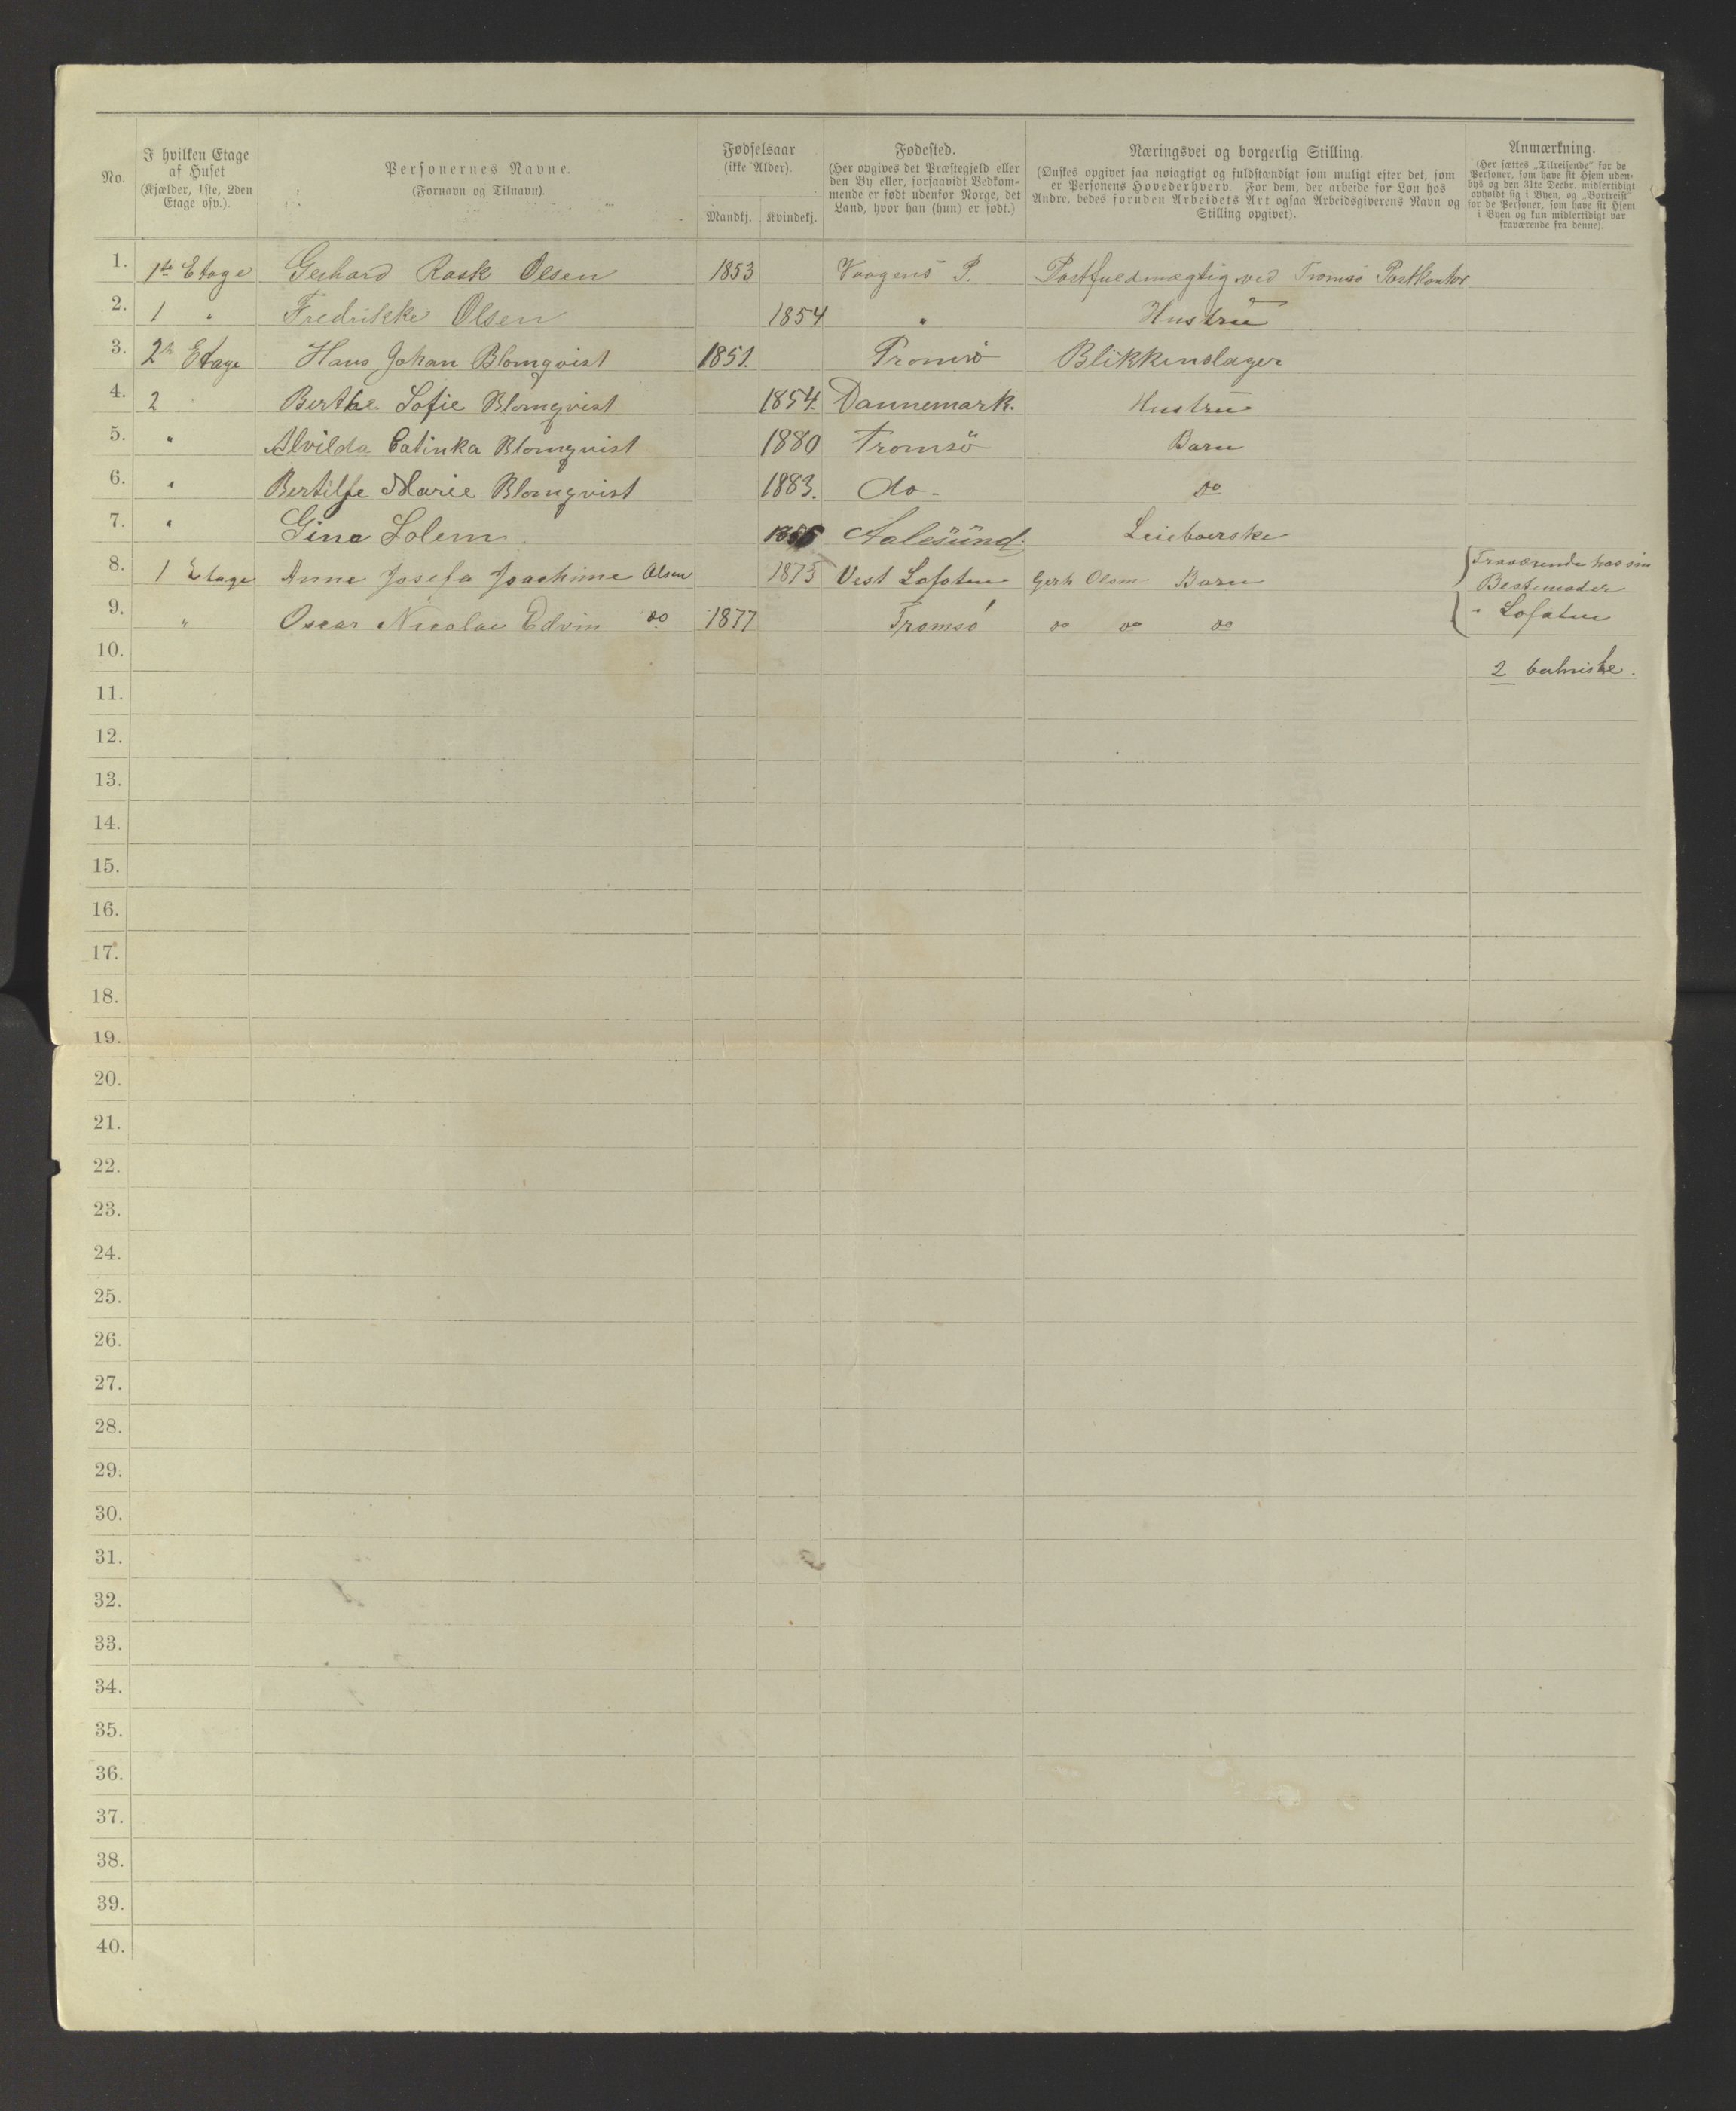 No.
I hvilken Etage
af Huset
(Kjælder, 1ste, 2den
Etage osv.).
Personernes Navne.
(Fornavn og Tilnavn).
Fødselsaar
(ikke Alder).
Mandkj. Kvindekj.
Fødested.
(Her opgives det Præstegjeld eller
den By eller, forsaavidt Vedkom-
mende er født udenfor Norge, det
Land, hvor han (hun) er født.)
Næringsvei og borgerlig Stilling.
(Ønskes opgivet saa nøiagtigt og fuldstændigt som muligt efter det, som
er Personens Hovederhverv. For dem, der arbeide for Løn hos
Andre, bedes foruden Arbeidets Art ogsaa Arbeidsgiverens Navn og
Stilling opgivet).
Anmærkning.
(Her sættes „Tilreisende" for de
Personer, som have sit Hjem uden-
bys og den 31te Decbr. midlertidigt
opholdt sig i Byen, og „Bortreist"
for de Personer, som have sit Hjem
i Byen og kun midlertidigt var
fraværende fra denne).
1. 1ste Etage Gerhard Rask Olsen 1853 Vaagens P. Postfuldmægtig ved Tromsø Postkontor
2. 1 " Fredrikke Olsen 1854 " Hustru
3. 2 Etage Hans Johan Blomqvist 1851. Tromsø Blikkenslager
4. 2 Berthe Sofie Blomqvist 1854. Dannemark. Hustru
5. " Alvilda Catinka Blomqvist 1880 Tromsø Barn
6. " Marie Blomqvist 1883. do. do
7. " Gina Solem Aalesund. Leieboerske
8. 1 Etage Anna Josefa Joachime Olsen 1875 Vest Lofoten Gerh Olsen Barn Fraværende hos sin
Bestemoder
9. " Oscar Nicolai Edvin do 1877 Tromsø do do do i Lofoten
10.
2
11.
12.
13.
14.
15.
16.
17.
18.
19.
20.
21.
22.
23.
24.
25.
26.
27.
28.
29.
30.
31.
32.
33.
34.
35.
36.
37.
38.
39.
40.